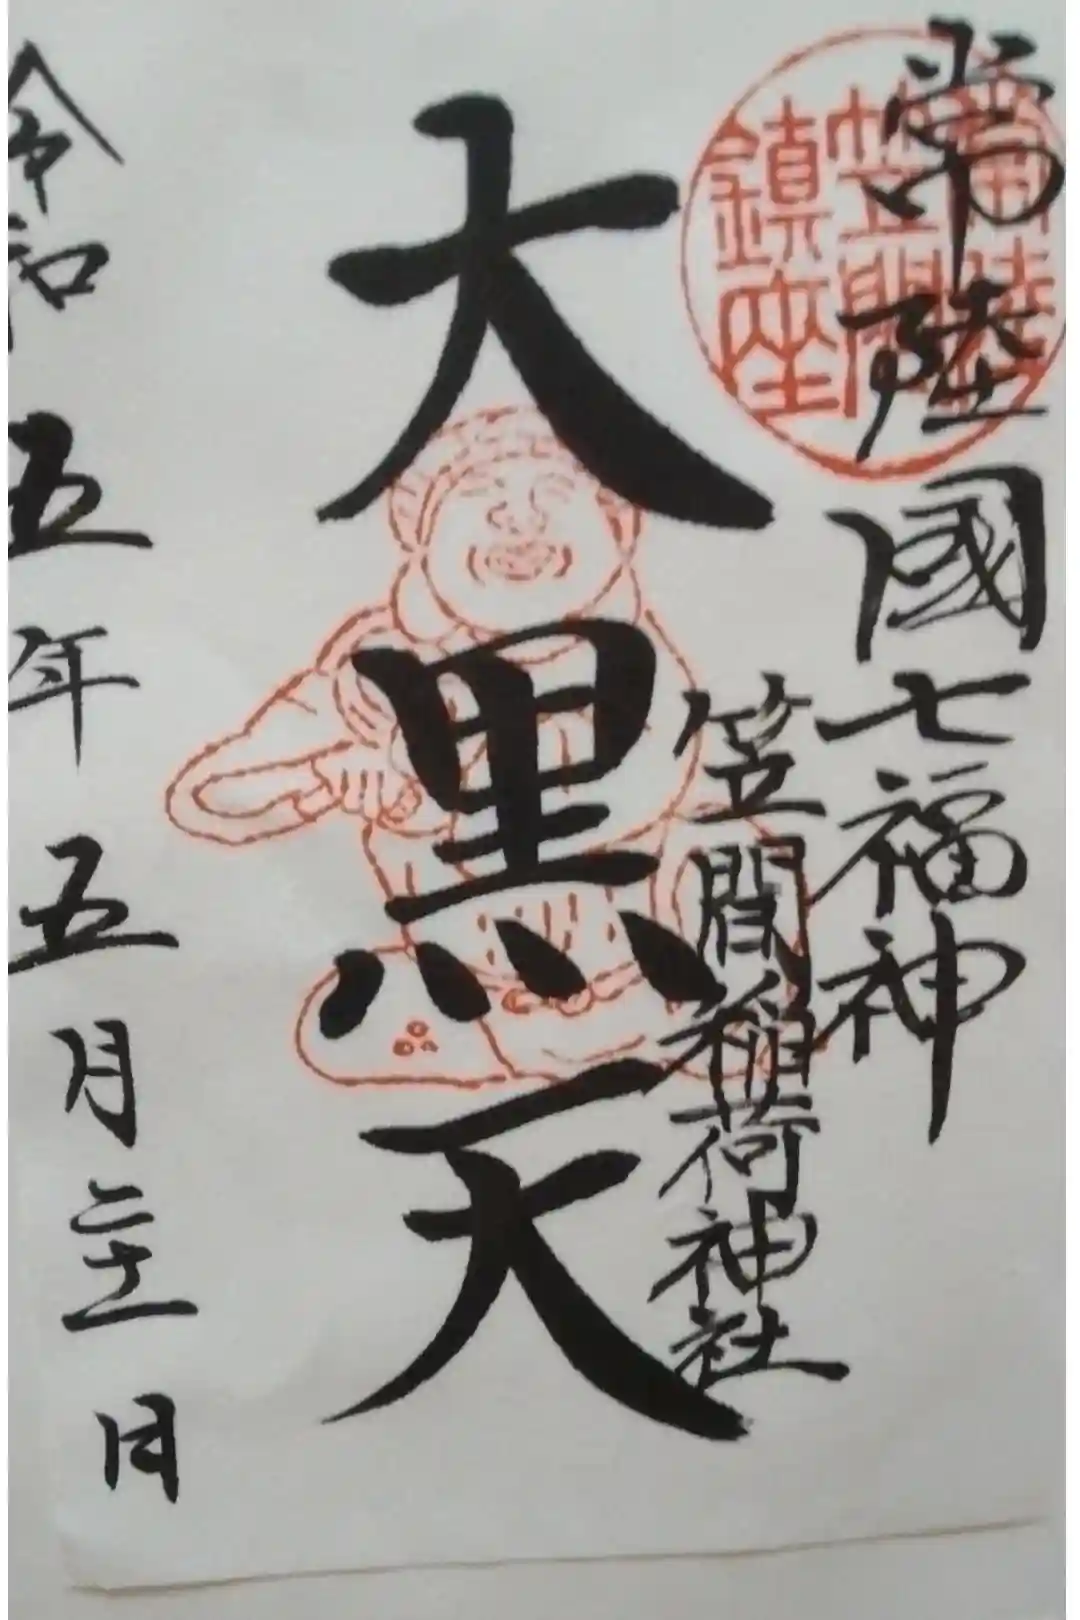 常陸國七福神
笠間稲荷神社
大黒天
令和五年五月二十一日
常陸
笠間
鎮座